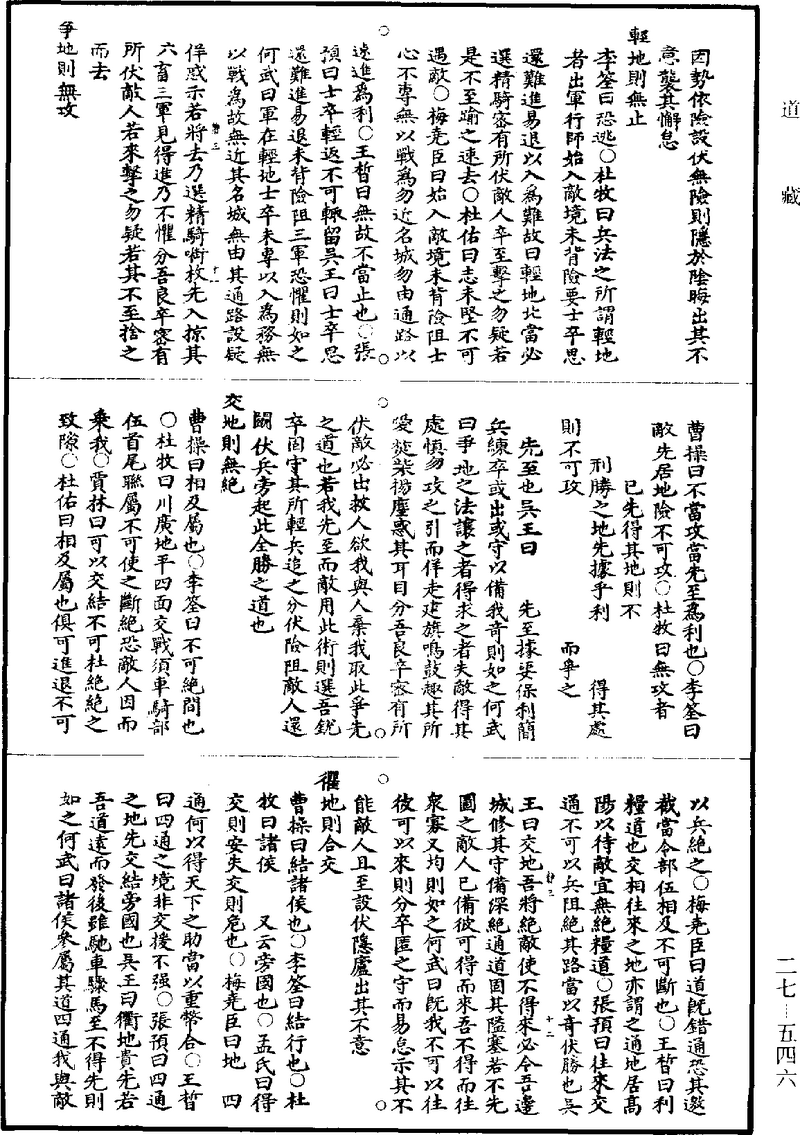 道藏
因勢依險設伏無險則隱於陰晦出其不
意襲其懈怠
輕地則無止
李筌曰恐逃○杜牧曰兵法之所謂輕地
者出軍行師始入敵境未背險要士卒思
還難進易退以入爲難故曰輕地此當必
選精騎密有所伏敵人卒至擊之勿疑若
是不至踰之速去○杜佑曰志未堅不可
遇敵○梅堯臣曰始入敵境未背險阻士
心不專無以戰爲勿近名城勿由通路以
速進爲利○王晳曰無故不當止也○張
預曰士卒輕返不可輒留吳王曰士卒思
還難進易退未背險阻三軍恐懼則如之
何武曰軍在輕地士卒未專以入爲務無
以戰爲故無近其名城無由其通路設疑
佯惑示若將去乃選精騎銜枚先入掠其
六畜三軍見得進乃不懼分吾良卒密有
所伏敵人若來擊之勿疑若其不至捨之
而去
爭地則無攻
曹操曰不當攻當先至爲利也○李筌曰
敵先居地險不可攻○杜牧曰無攻者
已先得其地則不
刑勝之地先據乎利 得其處
則不可攻 而爭之
先至也吳王曰 先至據要保利簡
兵練卒或出或守以備我奇則如之何武
曰爭地之法讓之者得求之者失敵得其
處慎勿攻之引而佯走建旗鳴鼓趣其所
愛拽柴揚塵惑其耳目分吾良卒密有所
伏敵必出救人欲我與人棄我取此爭先
之道也若我先至而敵用此術則選吾銳
卒固守其所輕兵追之分伏險阻敵人還
鬬伏兵旁起此全勝之道也
交地則無絕
曹操曰相及屬也○李筌曰不可絕間也
○杜牧曰川廣地平四面交戰須車騎部
伍首尾聯屬不可使之斷絕恐敵人因而
乘我○賈林曰可以交結不可杜絕絕之
致隙○杜佑曰相及屬也俱可進退不可
以兵絕之○梅堯臣曰道旣錯通恐其邀
截當令部伍相及不可斷也○王晳曰利
糧道也交相往來之地亦謂之通地居高
陽以待敵宜無絕糧道○張預曰往來交
通不可以兵阻絕其路當以奇伏勝也吳
王曰交地吾將絕敵使不得來必令吾邊
城修其守備深絕通道固其隘塞若不先
圖之敵人已備彼可得而來吾不得而往
衆寡又均則如之何武曰旣我不可以往
彼可以來則分卒匿之守而易怠示其不
能敵人且至設伏隱廬出其不意
衢地則合交
曹操曰結諸侯也○李筌曰結行也○杜
牧曰諸侯 又云旁國也○孟氏曰得
交則安失交則危也○梅堯臣曰地 四
通何以得天下之助當以重幣合○王晳
曰四通之境非交援不强○張預曰四通
之地先交結旁國也吳王曰衢地貴先若
吾道遠而發後雖馳車驟馬至不得先則
如之何武曰諸侯參屬其道四通我與敵
二七—五四六